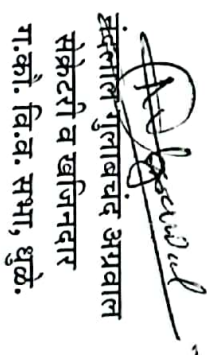 नंदलाल गुलाबचंद अग्रवाल
सेक्रेटरी व खजिनदार
ग.कों. वि.व. सभा, धुळे.